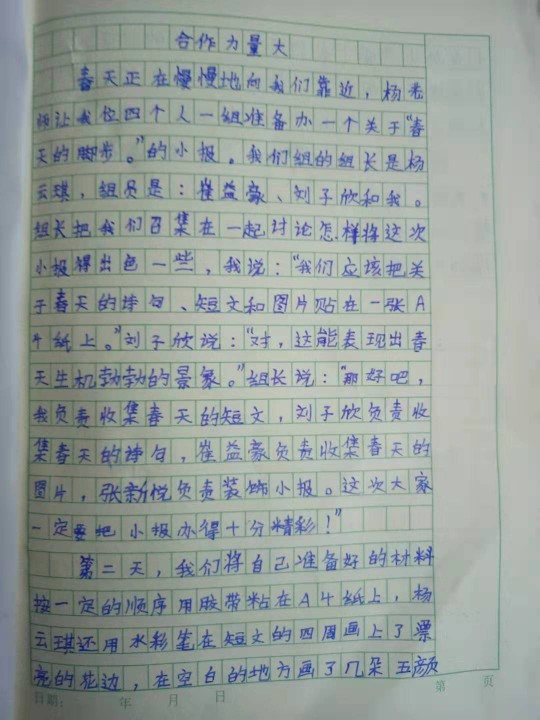 合作力量大
春天正在慢慢地向我们靠近，杨老
师让我位四个人一组准备办一个关于“春
天的脚步。”的小报。我们组的组长是杨
云琪，组员是：崔益豪、刘子欣和我。
组长把我们召集在一起讨论怎样将这次
小报得出色一些，我说：“我们应该把关
于春天的诗句、短文和图片贴在一张A
4纸上。”刘子欣说：“对，这能表现出春
天生机勃勃的景象。”组长说：“那好吧，
我负责收集春天的短文，刘子欣负责收
集春天的诗句，崔益豪负责收集春天的
图片，张新悦负责装饰小报。这次大家
一定要把小报办得十分精彩！”
第二天，我们将自己准备好的材料
按一定的顺序用胶带粘在A4纸上，杨
云琪还用水彩笔在短文的四周画上了漂
亮的花边，在空白的地方画了几朵五颜
日期： 年 月 日 第 页